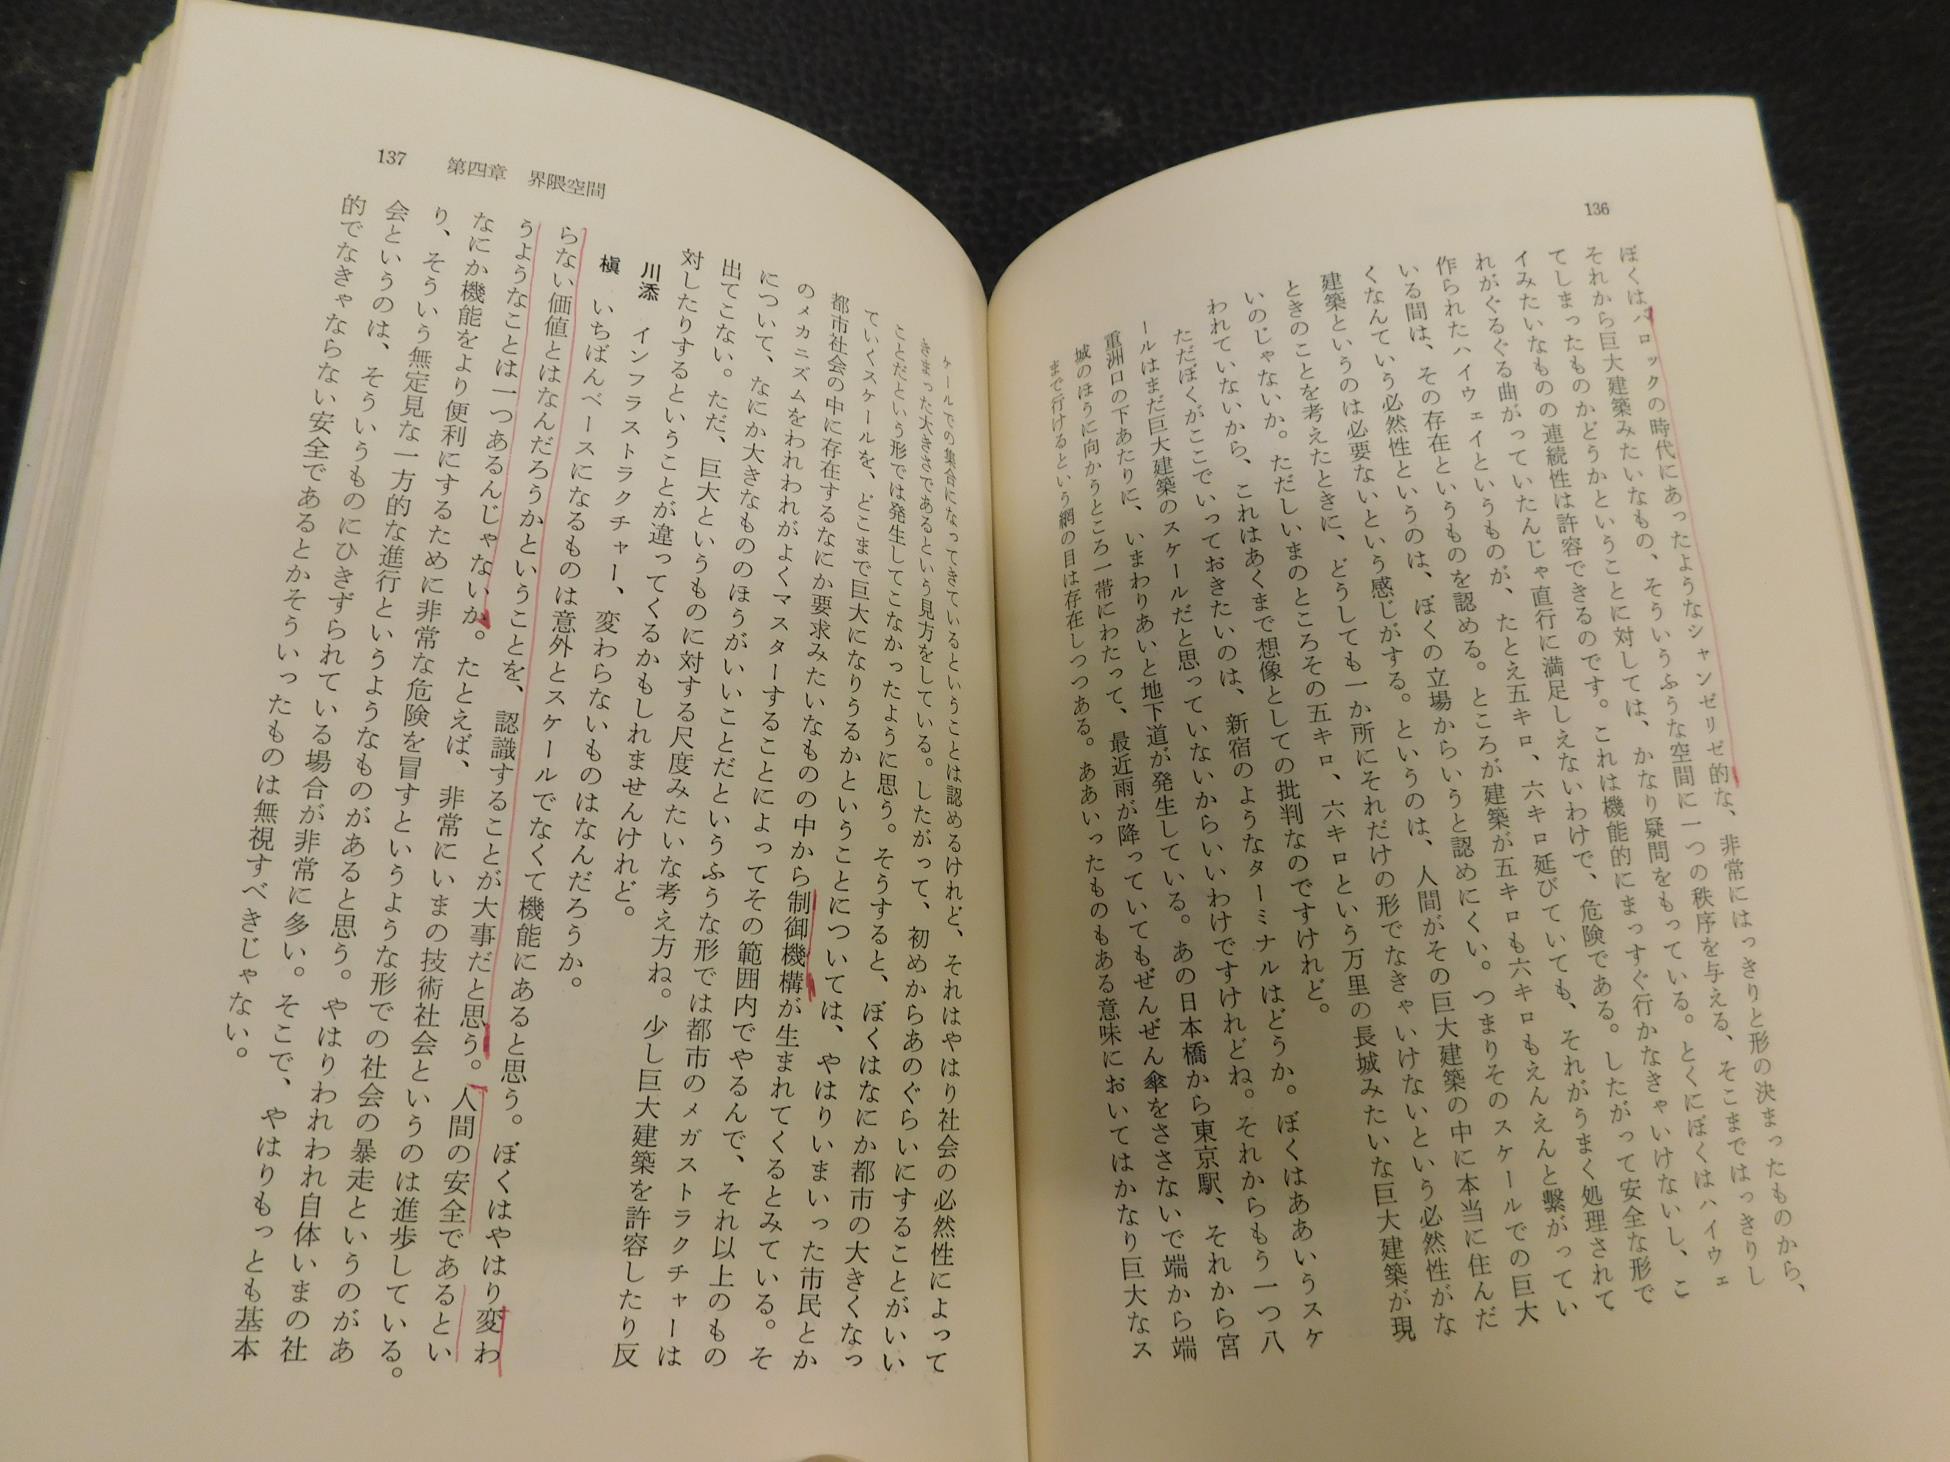 136
ぼくはバロックの時代にあったようなシャンゼリゼ的な、非常にはっきりと形の決まったものから、
それから巨大建築みたいなもの、そういうふうな空間に一つの秩序を与える、そこまではっきりし
てしまったものかどうかということに対しては、かなり疑問をもっている。とくにぼくはハイウェ
イみたいなものの連続性は許容できるのです。これは機能的にまっすぐ行かなきゃいけないし、こ
れがぐるぐる曲がっていたんじゃ直行に満足しえないわけで、危険である。したがって安全な形で
作られたハイウェイというものが、たとえ五キロ、六キロ延びていても、それがうまく処理されて
いる間は、その存在というものを認める。ところが建築が五キロも六キロもえんえんと繋がってい
くなんていう必然性というのは、ぼくの立場からいうと認めにくい。つまりそのスケールでの巨大
建築というのは必要ないという感じがする。というのは、人間がその巨大建築の中に本当に住んだ
ときのことを考えたときに、どうしても一か所にそれだけの形でなきゃいけないという必然性がな
いのじゃないか。ただしいまのところその五キロ、六キロという万里の長城みたいな巨大建築が現
われていないから、これはあくまで想像としての批判なのですけれど。
ただぼくがここでいっておきたいのは、新宿のようなターミナルはどうか。ぼくはああいうスケ
ールはまだ巨大建築のスケールだと思っていないからいいわけですけれどね。それからもう一つ八
重洲口の下あたりに、いまわりあいと地下道が発生している。あの日本橋から東京駅、それから宮
城のほうに向かうところ一帯にわたって、最近雨が降っていてもぜんぜん傘をささないで端から端
まで行けるという網の目は存在しつつある。ああいったものもある意味においてはかなり巨大なス
137 第四章 界隈空間
ケールでの集合になってきているということは認めるけれど、それはやはり社会の必然性によって
きまった大きさであるという見方をしている。したがって、初めからあのぐらいにすることがいい
ことだという形では発生してこなかったように思う。そうすると、ぼくはなにか都市の大きくなっ
ていくスケールを、どこまで巨大になりうるかということについては、やはりいまいった市民とか
都市社会の中に存在するなにか要求みたいなものの中から制御機構が生まれてくるとみている。そ
のメカニズムをわれわれがよくマスターすることによってその範囲内でやるんで、それ以上のもの
について、なにか大きなもののほうがいいことだというふうな形では都市のメガストラクチャーは
出てこない。ただ、巨大というものに対する尺度みたいな考え方ね。少し巨大建築を許容したり反
対したりするということが違ってくるかもしれませんけれど。
川添 インフラストラクチャー、変わらないものはなんだろうか。
槇 いちばんベースになるものは意外とスケールでなくて機能にあると思う。ぼくはやはり変わ
らない価値とはなんだろうかということを、認識することが大事だと思う。人間の安全であるとい
うようなことは一つあるんじゃないか。たとえば、非常にいまの技術社会というのは進歩している。
なにか機能をより便利にするために非常な危険を冒すというような形での社会の暴走というのがあ
り、そういう無定見な一方的な進行というようなものがあると思う。やはりわれわれ自体いまの社
会というのは、そういうものにひきずられている場合が非常に多い。そこで、やはりもっとも基本
的でなきゃならない安全であるとかそういったものは無視すべきじゃない。